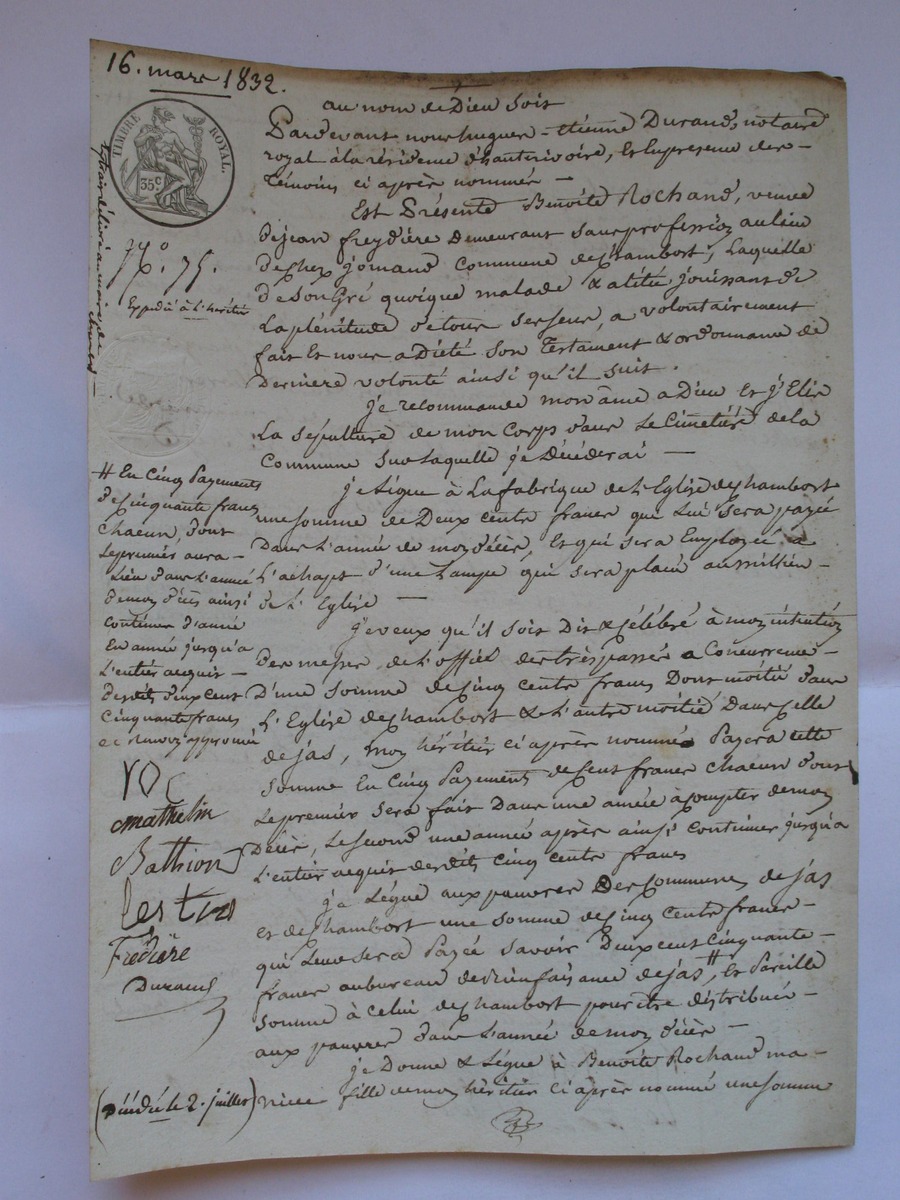 16. mars 1832.
TIMBRE ROYAL.
35 C
Extrait délivré au maire de Chambost
N.o 75.
Expédié à l'héritier
au nom de Dieu soit
Pardevant nous hugues-étienne Durand, notaire
royal à la résidence d'hauterivoire, Et En presence des
témoins ci après nommés
Est Présente Benoite Rochand, veuve
de jean freydiere Demeurant sans profession au lieu
de chez jomand commune de Chambost, Laquelle
de son Gré quoique malade & alitée, jouissant de
La plénitude de tous ses sens, a volontairement
fait Et nous a Dicté son Testament & ordonnance de
Derniere volonté ainsi qu'il suit.
je recommande mon âme a Dieu Et j'Elis
La sépulture de mon Corps dans Le Cimetière de la
Commune sur Laquelle je Décéderai
je Légue à La fabrique de L'Eglise de Chambost
une somme de Deux cents francs qui Lui sera payée
Dans L'année de mon décès, Et qui sera Employée a
L'achapt d'une Lampe qui sera placée au millieu
de L'Eglise
je veux qu'il soit Dit & célébré à mon intention
des messes de L'office des trèspassés a Concurrence
D'une somme de Cinq cents francs Dont moitié dans
L'Eglise de Chambost & L'autre moitié Dans celle
de jas, mon héritier ci après nommé Payera cette
somme En Cinq Payements de Cent francs chacun dont
Le premier sera fait Dans une année à compter de mon
Décès, Le second une année après ainsi Continuer jusqu'a
L'entier acquis desdits Cinq cents francs
je Légue aux pauvres Des communes de jas
et de Chambost une somme de Cinq Cents francs
qui Leur sera Payée savoir Deux cent Cinquante
francs au bureau de Bienfaisance de jas #, Et Pareille
somme à Celui de Chambost pour être distribuée
aux pauvres dans L'année de mon décès
je Donne & Légue à Benoite Rochand ma
niece fille de mon héritier ci après nommé une somme
# En Cinq Payements
de Cinquante francs
chacun, dont
Le premier aura
Lieu dans L'année
de mon décès ainsi
Continuer d'année
En année jusqu'a
L'entier acquis
desdits deux cent
Cinquante francs
ce renvoi approuvé
mathelin
Bathion
Fredière
Durand
(Décédée le 2. juillet)